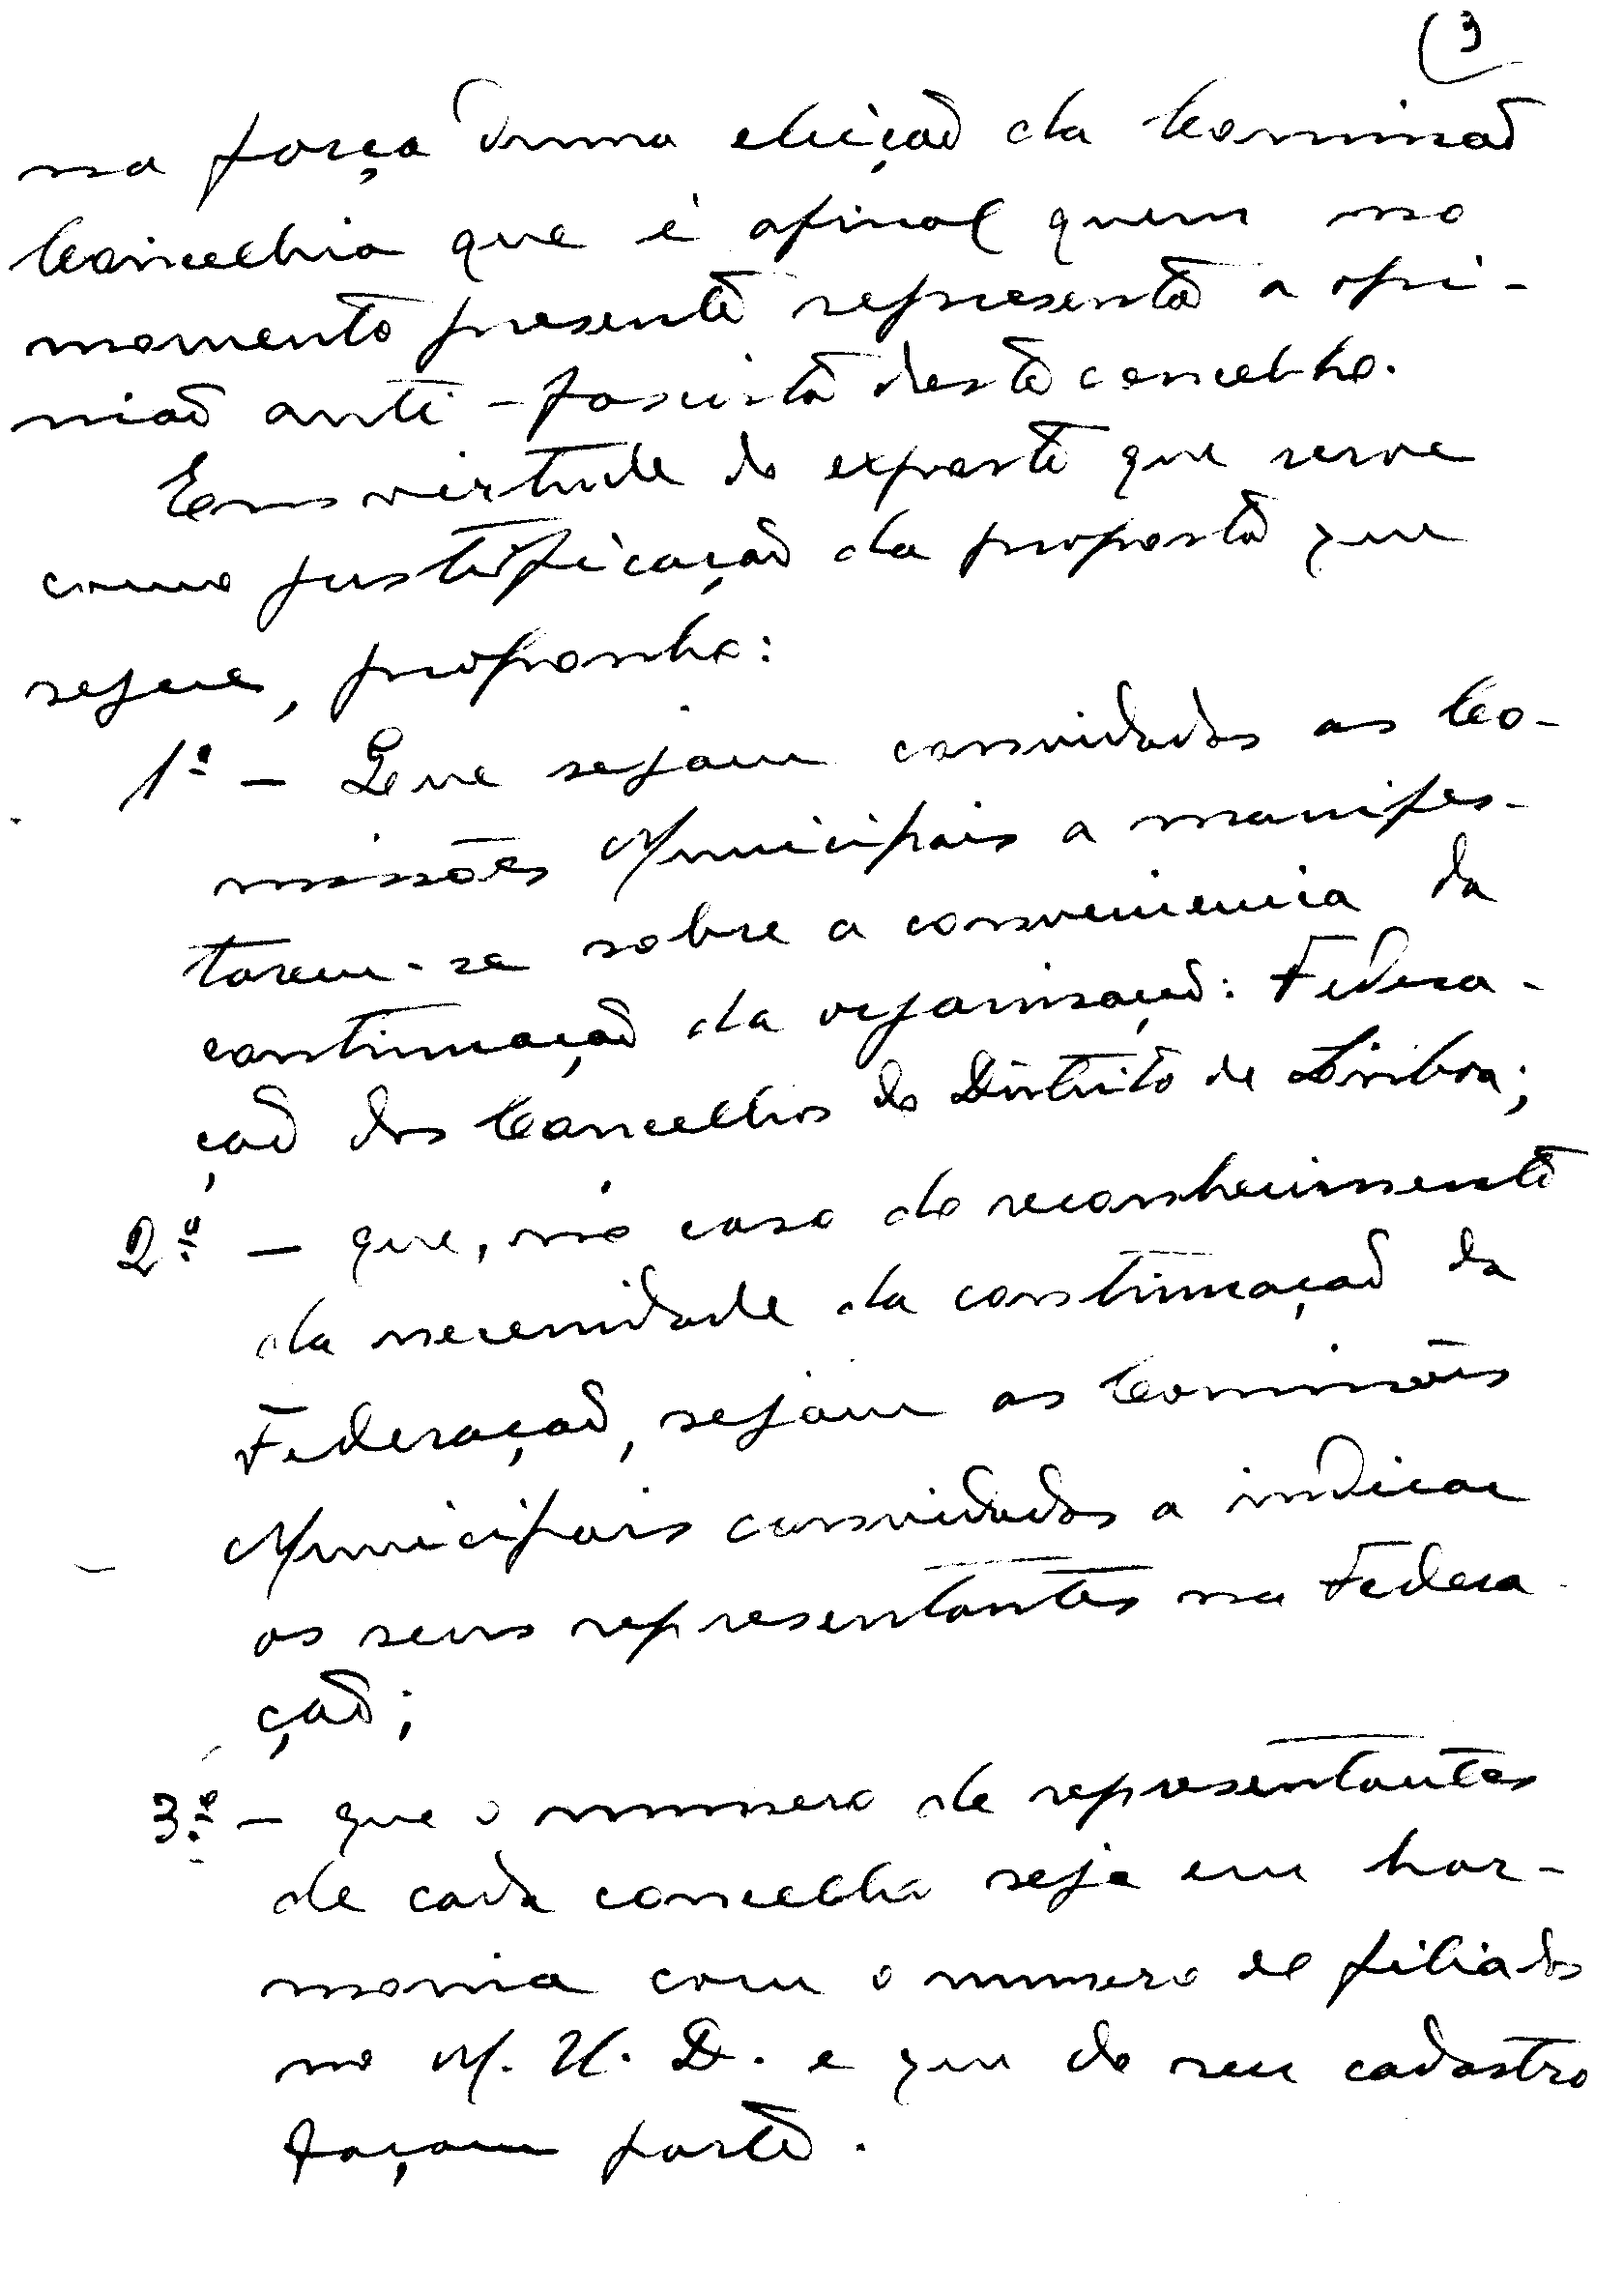 (3
na força duma eleição da Comissão
Concelhia que é afinal quem no
momento presente representa a opi-
nião anti-fascista deste concelho.
Em virtude do exposto que serve
como justificação da proposta que
segue, proponho:
1º - Que sejam convidadas as Co-
missões Municipais a manifes-
tarem-se sobre a conveniencia da
continuação da organisação: Federa-
ção dos Concelhos do Distrito de Lisboa;
2º - que, no caso do reconhecimento
da necessidade da continuação da
Federação, sejam as Comissões
Municipais convidadas a indicar
os seus representantes na Federa
ção;
3.º - que o numero de representantes
de cada concelho seja em har-
monia com o numero de filiados
no M. U. D. e que do seu cadastro
façam parte.